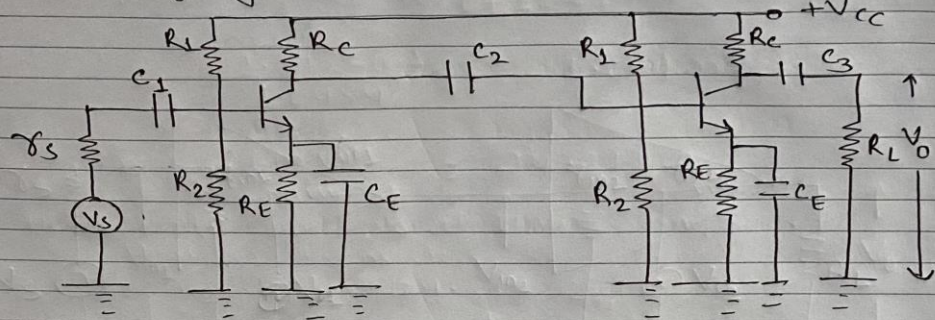 +VCC
R1 RC C2 R1 RC C3
C1
rs R2 RE CE R2 RE CE RL Vo
Vs